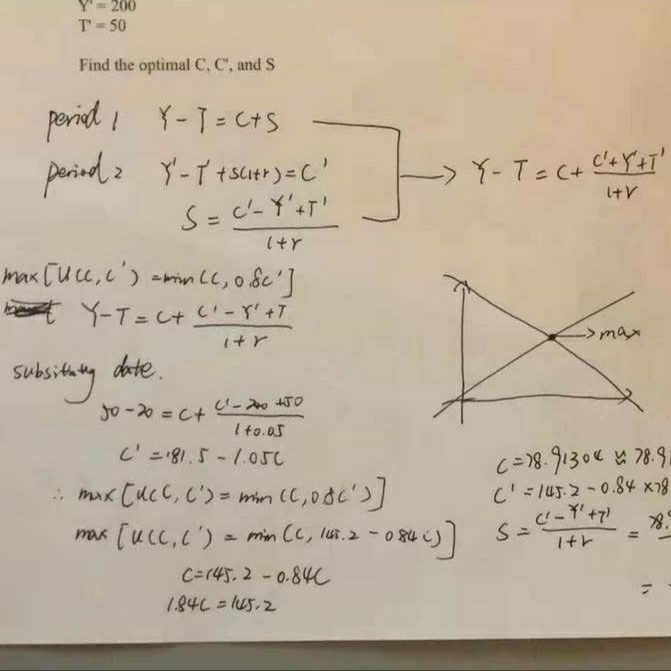 Y' = 200
T' = 50
Find the optimal C, C', and S
period 1 Y-T = C+S
period 2 Y'-T'+S(1+r) = C'
S = (C'-Y'+T')/(1+r)
→ Y-T = C+ (C'+Y'+T')/(1+r)
max [U(C, C') = min(C, 0.8C']
Y-T = C+ (C'-Y'+T)/(1+r)
date.
50-20 = C+ (C'-200+50)/(1+0.05)
C' = 181.5 - 1.05C
∴ max [U(C, C') = min (C, 0.8C')]
max [U(C, C') = min (C, 145.2 - 0.84C)]
C = 145.2 - 0.84C
1.84C = 145.2
→ max
C = 78.91304 ≈ 78.91
C' = 145.2 - 0.84 × 78
S = (C'-Y'+T')/(1+r) =
= -